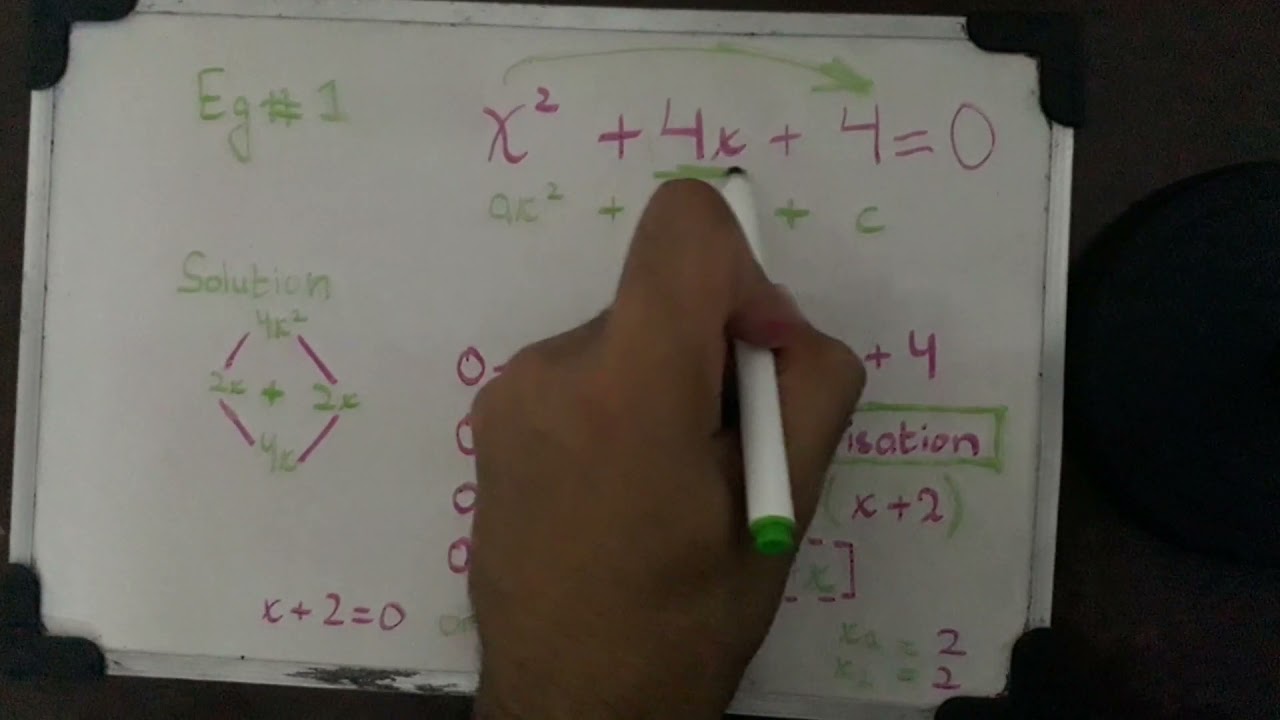 Eg # 1
x² + 4x + 4 = 0
ax² + + c
Solution
4x²
2x + 2x
4x
0 + 4
0 isation
0 (x+2)
0 [x]
x + 2 = 0
= 2
= 2